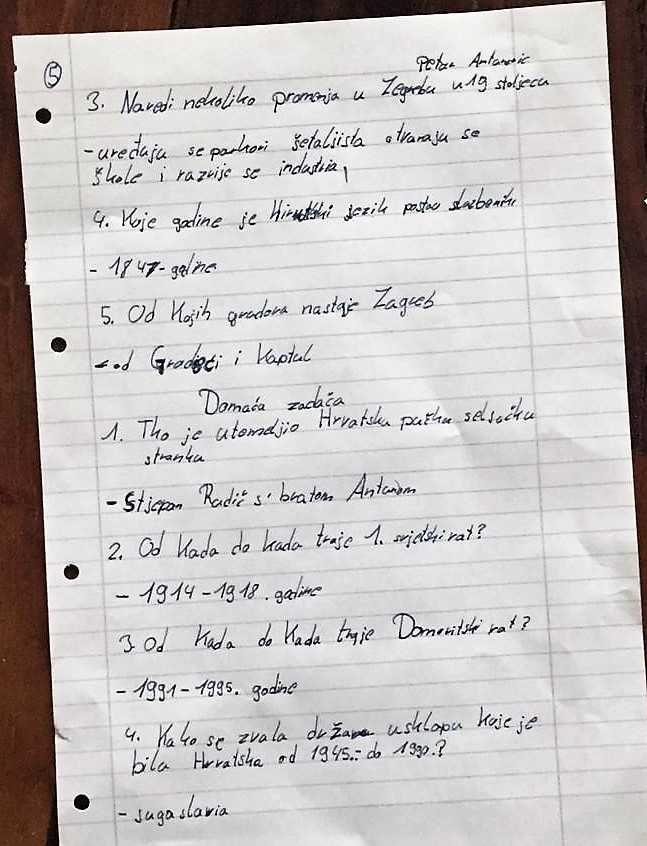 5
Petra Antanovic
3. Navedi nekoliko promenja u Zagrebu u 19 stoljecu
- uređuju se parkovi šetaljista otvaraju se
škole i razvije se industria,
4. Koje godine je Hrvatski jezik postao službeniki
- 1847- godine
5. Od Kojih gradova nastaje Zagreb
- od Gradeci i Kaptul
Domaća zadaća
1. Tko je utomeljio Hrvatsku pučku seljsačku
stranku
- Stjepan Radič s' bratom Antunom
2. Od Kada do kada traje 1. svjetski rat?
- 1914-1918. godine
3. Od Kada do Kada traje Domovitski rat?
- 1991-1995. godine
4. Kako se zvala država usklopu koje je
bila Hrvatska od 1945.- do 1990.?
- sugaslavia